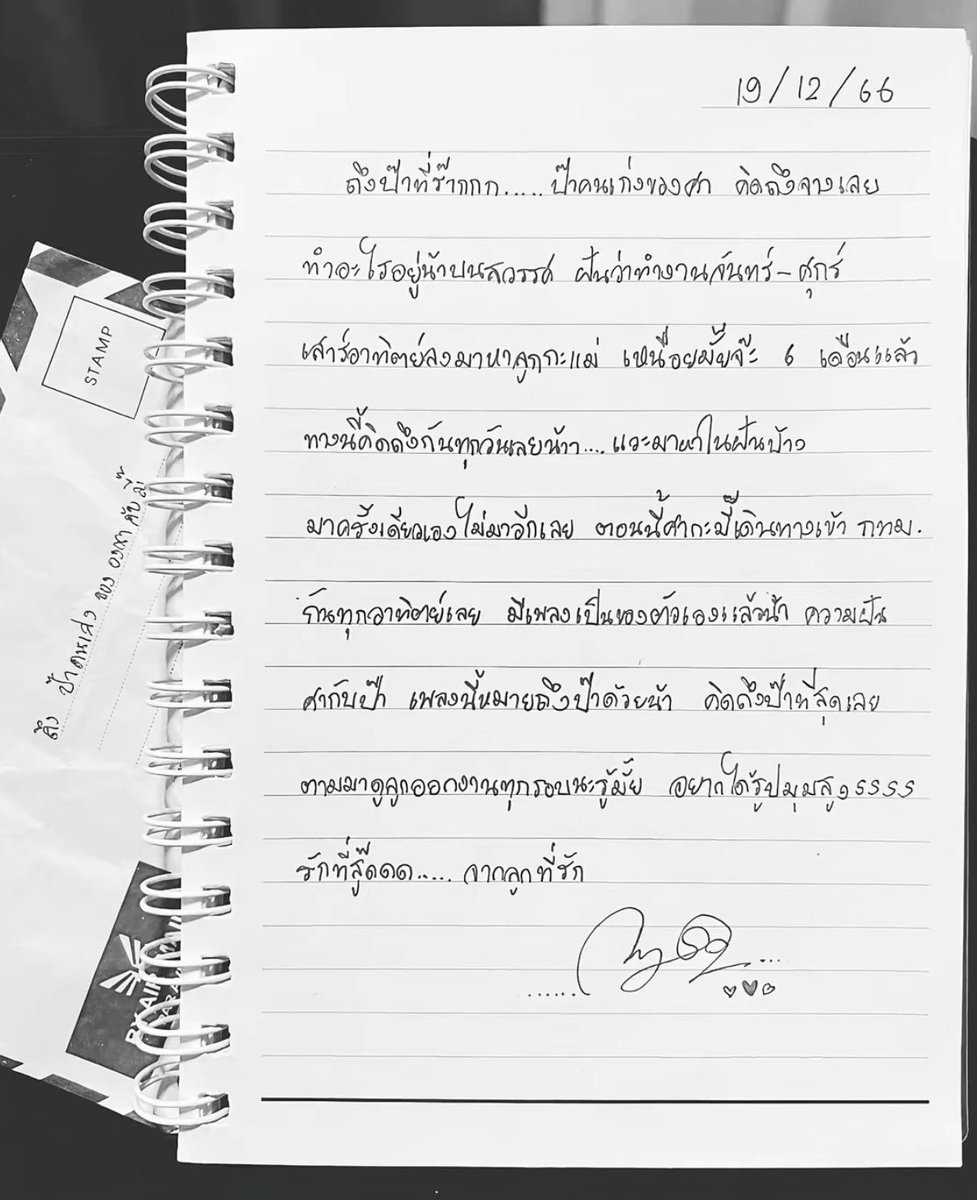 19/12/66
ถึงป๊าที่ร๊ากกก..... ป๊าคนเก่งของศา คิดถึงจางเลย
ทำอะไรอยู่น้าบนสวรรค์ ฝันว่าทำงานจันทร์-ศุกร์
เสาร์อาทิตย์ลงมาหาลูกกะแม่ เหนื่อยมั้ยจ๊ะ 6 เดือนแล้ว
ทางนี้คิดถึงกันทุกวันเลยน้าา.... แวะมาหาในฝันบ้าง
มาครั้งเดียวเองไม่มาอีกเลย ตอนนี้ศากะมี๊เดินทางเข้า กทม.
กันทุกอาทิตย์เลย มีเพลงเป็นของตัวเองแล้วน้า ความฝัน
ศากับป๊า เพลงนี้หมายถึงป๊าด้วยน้า คิดถึงป๊าที่สุดเลย
ตามมาดูลูกออกงานทุกรอบนะรู้มั้ย อยากได้รูปมุมสูงรรรร
รักที่สู๊ดดด..... จากลูกที่รัก
STAMP
ถึง ป๊าคนเก่ง ของ